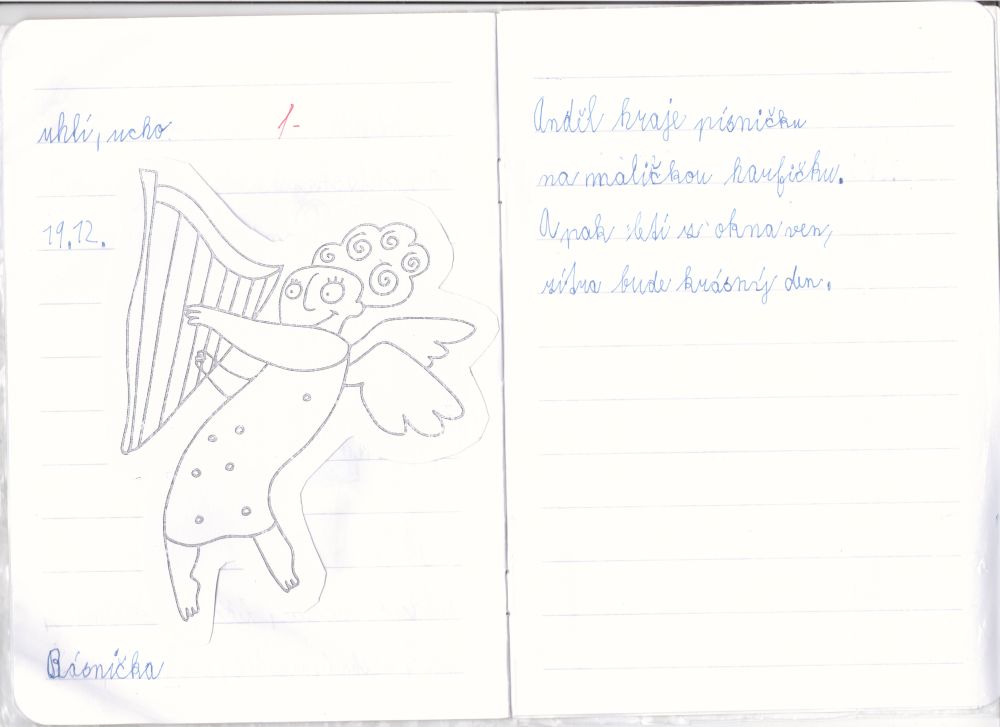 uhlí, ucho. 1-
19.12.
Básnička
Anděl hraje písničku
na maličkou harfičku.
A pak letí z okna ven,
zítra bude krásný den.